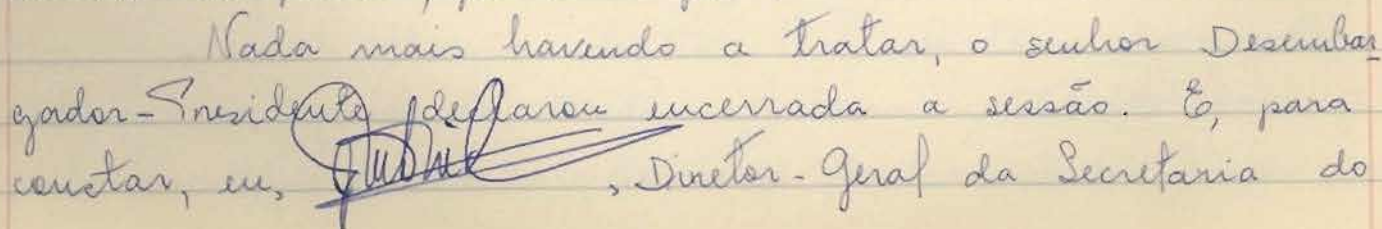 Nada mais havendo a tratar, o senhor Desembar
gador-Presidente declarou encerrada a sessão. E, para
constar, eu, , Diretor-Geral da Secretaria do